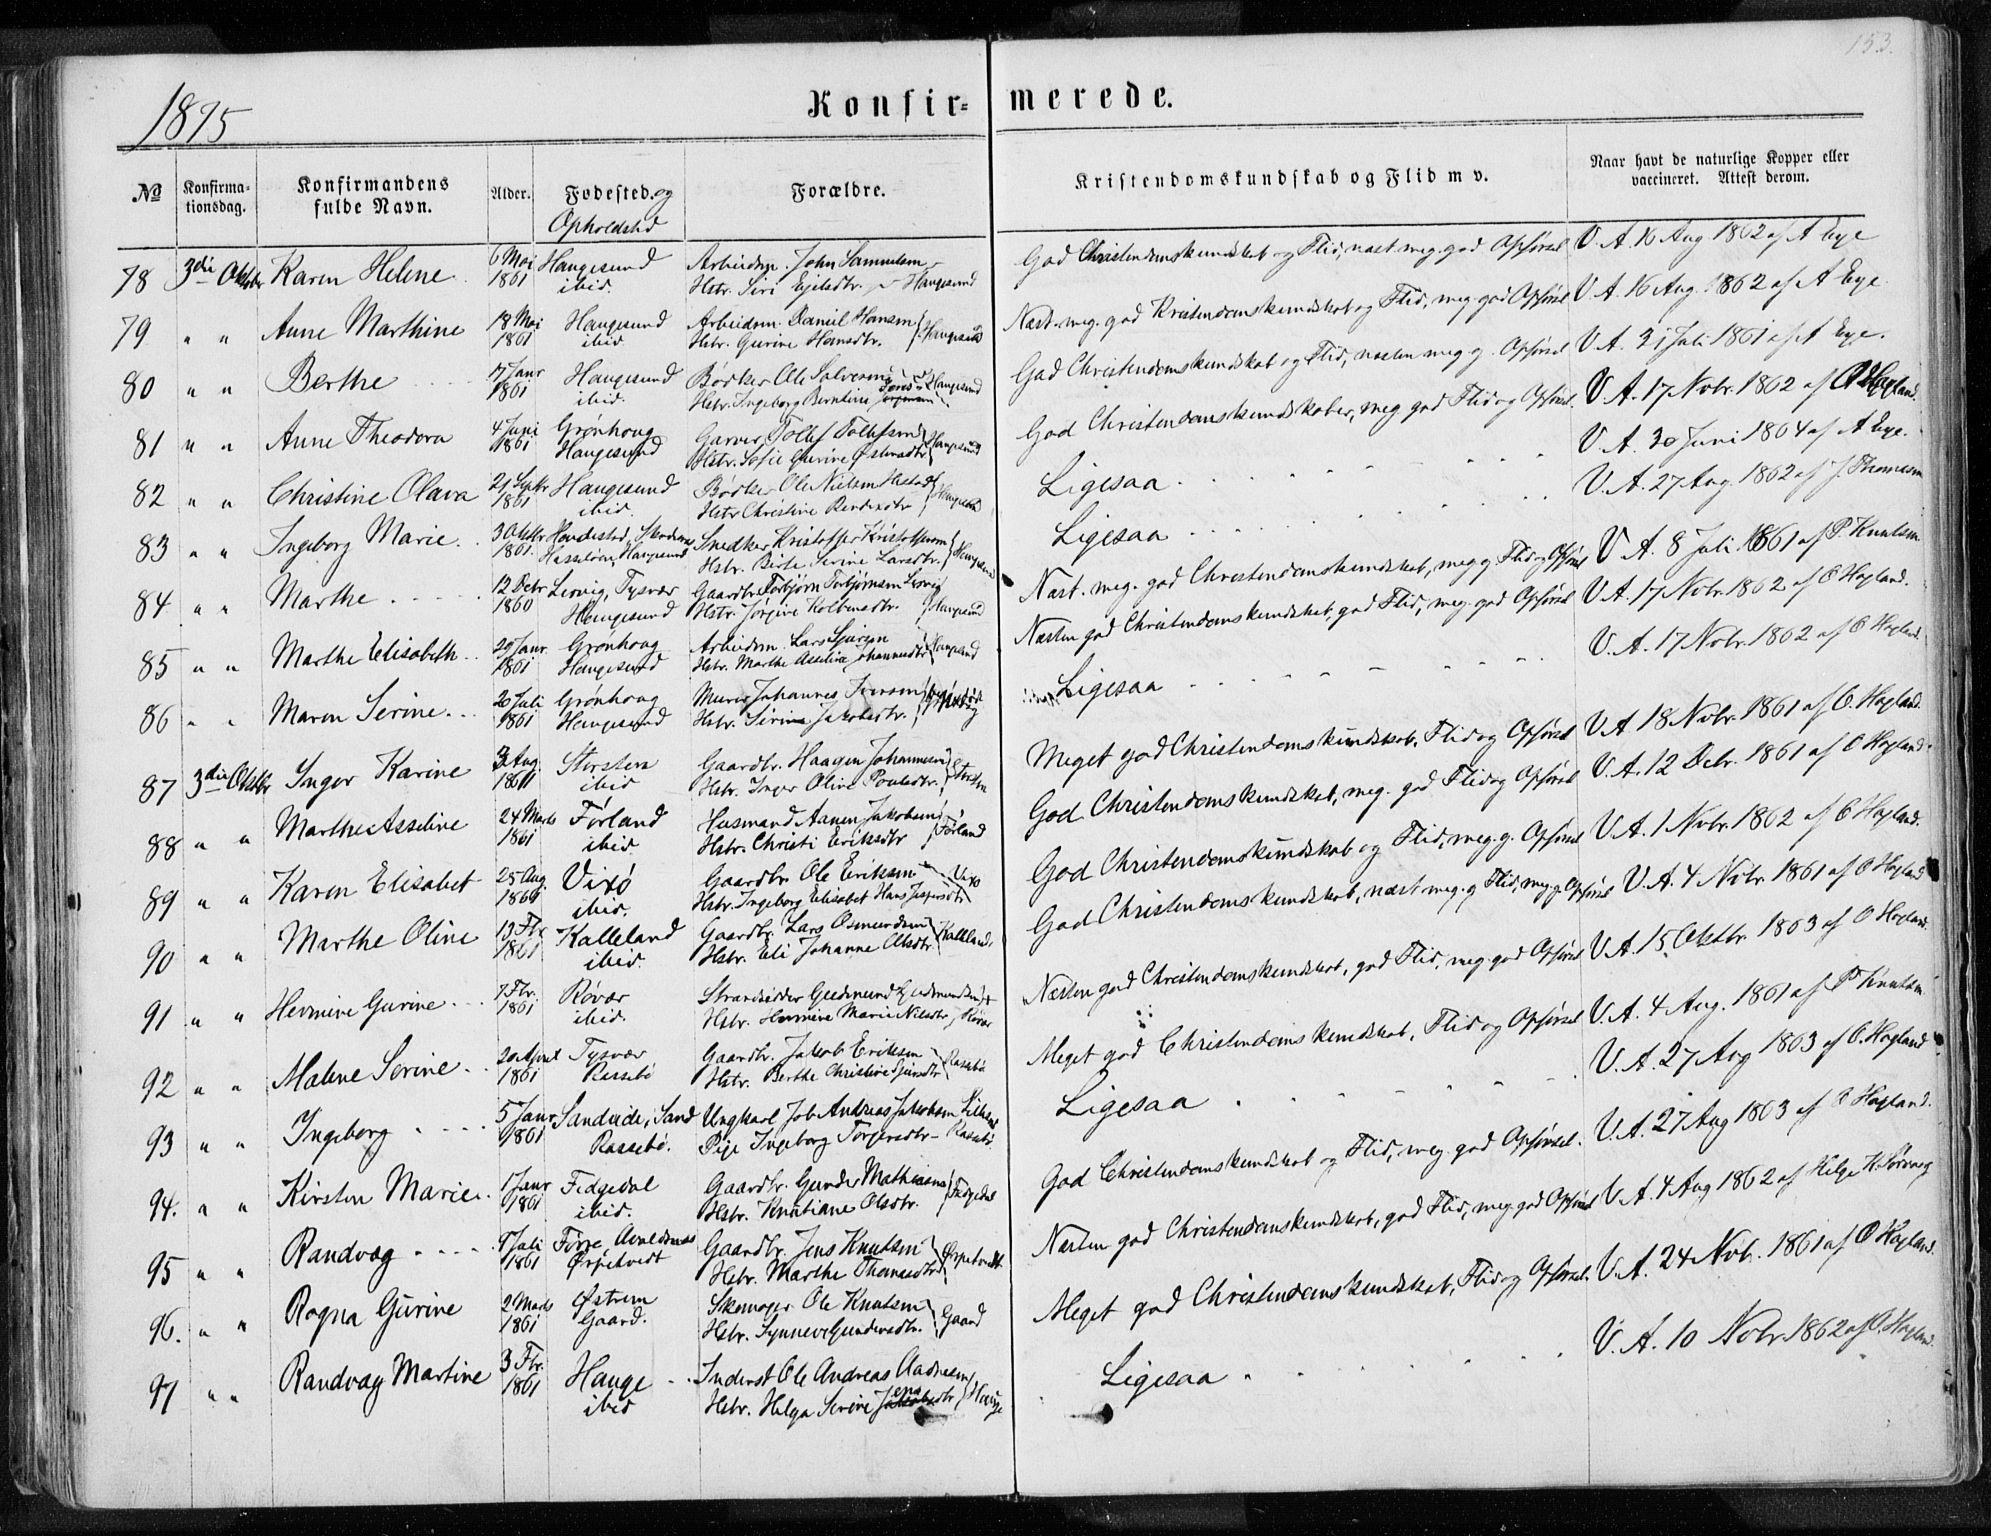 153.
1875
Konfir= merede.
№ Konfirma-tionsdag. Konfirmandens fulde Navn. Alder. Fødested og Opholdsted Forældre. Kristendomskundskab og Flid m v. Naar havt de naturlige Kopper eller vaccineret. Attest derom.
78 3die Oktobr Karen Helene 6 Mai Haugesund Arbeidsm. John Samuelsen God Christendomskundskab og Flid, næst meg. god Opførsel V. A. 16 Aug 1862 af A Eye
1861 ibid. Hstr. Siri Ejelsdtr. Haugesund
79 " " Anne Marthine 18 Mai Haugesund Arbeidsm. Daniel Hansen Næst. meg. god Kristendomskundskab og Flid, meg. god Opførsel V. A. 16 Aug. 1862 af A Eye
1861 ibid Hstr. Gurine Hansdtr. Haugesund
80 " " Berthe 17 Janr Haugesund Bødker Ole Salvesen God Christendomskundskab og Flid, næsten meg g. Opførsel V. A. 31 Juli 1861 af A Eye.
1861 ibid. Hstr. Ingeborg Berntine Haugesund
81 " " Anne Theodora 4 Juni Grønhoug Garver Tollef Tollefsen God Christendomskundskaber, meg god Flid og Opførsel. V. A. 17 Nobr. 1862 af O Hogland.
1861 Haugesund Hstr. Sofie Gurine Haugesund
82 " " Christine Olava 21 Septr Haugesund Bødker Ole Nielsen Ligesaa V. A. 30 Juni 1864 af A Eye.
1861 ibid. Hstr Christine Haugesund
83 " " Ingeborg Marie 3 Oktbr Snedker Kristoffer Kristoffersen Ligesaa V. A. 27 Aug. 1862 af J. Thomasen
1861. Haugesund Hstr. Berte Serine Larsdtr. Haugesund
84 " " Marthe 12 Debr Lervig, Tysvær Gaardbr Torbjørn Torbjørnsen Lervig Næst. meg. god Christendomskundskab, meg g Flid og Opførsel V. A. 8 Juli 1861 af P. Knutsen
1860 Haugesund Hstr. Jørgine Kolbensdtr. Haugesund
85 " " Marthe Elisabeth 29 Janr Grønhoug Arbeidsm. Lars Sjursen Næsten god Christendomskundskab, god Flid, meg. god Opførsel V. A. 17 Nobr. 1862 af O Hogland.
1861 Haugesund Hstr. Marthe Asseline Johannesdtr Haugesund
86 " " Maren Serine 20 Juli Grønhoug Murer Johannes Iversen Ligesaa V. A. 17 Nobr. 1862 af O Hogland
1861 Haugesund Hstr. Serine Jakobsdtr.
87 3die Oktbr Inger Karine 3 Aug. Storsten Gaardbr. Haagen Johannesen Meget god Christendomskundskab, Flid og Opførsel V. A. 18 Nobr. 1861 af O. Hogland.
1861 ibid Hstr. Inger Oline Poulsdtr. Storsten
88 " " Marthe Asseline 24 Marts Førland Husmand Aanen Jakobsen God Christendomskundskab, meg. god Flid og Opførsel V. A. 12 Debr. 1861 af O Hogland
1861 ibid Hstr. Christi Eriksdtr Førland
89 " " Karen Elisabet 25 Aug. Vixø Gaardbr. Ole Eriksen Vixø God Christendomskundskab og Flid, meg. g. Opførsel V. A. 1 Nobr. 1862 af O Hogland.
1860 ibid. Hstr. Ingeborg Elisabet Hans Jespersdtr
90 " " Marthe Oline 13 Fbr Kalleland Gaardbr. Lars Osmundsen God Christendomskundskab, næst meg. g Flid, meg. g. Opførsel V. A. 4 Nobr. 1861 af O Hogland
1861 ibid. Hstr. Eli Johanne Olsdtr. Kalleland
91 " " Hermine Gurine 7 Fbr. Røvær Strandsidder Gudmund Gudmundsen Næsten god Christendomskundskab, god Flid, meg. god Opførsel V. A. 15 Oktbr. 1863 af O Hogland.
1861 ibid. Hstr. Hermine Marie Nilsdtr Røvær
92 " " Malene Serine 20 April Tysvær Gaardbr. Jakob Eriksen Meget god Christendomskundskab, Flid og Opførsel V. A. 4 Aug. 1861 af P Knutsen
1861 Rassebø Hstr. Berthe Christine Rassebø
93 " " Ingeborg 5 Janr Sandeide, Sand Ungkarl Job Andreas Jakobsen Ligesaa V. A. 27 Aug 1863 af O. Hogland
1861 Rassebø. Pige Ingeborg Torgersdtr - Rassebø
94. " " Kirsten Marie 1 Janr Fedgedal Gaardbr. Gunder Mathiasen God Christendomskundskab og Flid, meg. god Opførsel. V. A. 27 Aug 1863 af O Hogland.
1861 ibid. Hstr. Knutiane Olsdtr. Fedgedal
95 " " Randvag 9 Juli Førre Avaldsnes Gaardbr. Jens Knutsen Næsten god Christendomskundskab, god Flid, meg. god Opførsel V. A. 4 Aug 1862 af Helge K.
1861 Ørpetvedt Hstr. Marthe Thomasdtr Ørpetvedt
96. " " Ragna Gurine 2 Marts Østrem Skomager Ole Knutsen Meget god Christendomskundskab, Flid og Opførsel. V. A. 24 Nob. 1861 af O Hogland.
1861 Gaard. Hstr. Synneve Gundersdtr. Gaard
97 " " Randvag Martine 3 Fbr. Hauge Inderst Ole Andreas Aadnesen Ligesaa V. A. 10 Nobr. 1862 af O. Hogland.
1861 ibid Hstr. Helga Serine Jensdtr Hauge